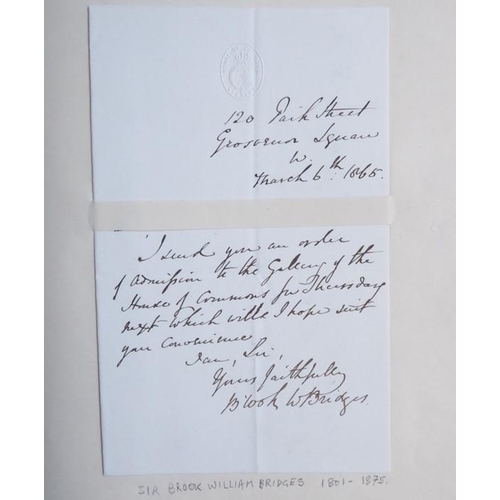 120 Park Street
Grosvenor Square
W.
March 6th. 1865.
I send you an order
of admission to the Gallery of the
House of Commons for Thursday
next which will I hope suit
your convenience
I am, Sir,
Yours faithfully
Brook W Bridges.
SIR BROOK WILLIAM BRIDGES 1801-1875.